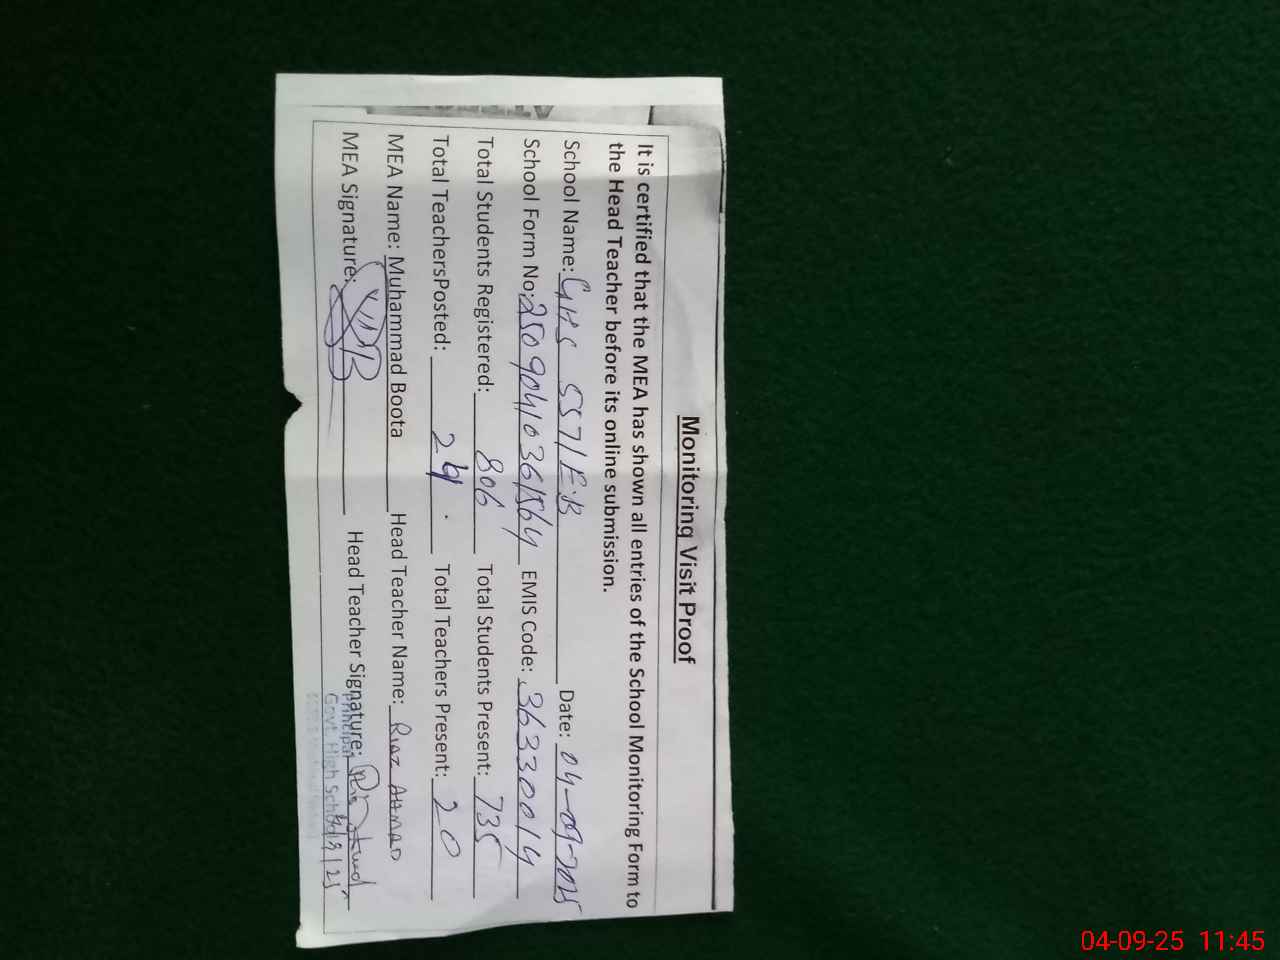 Monitoring Visit Proof
It is certified that the MEA has shown all entries of the School Monitoring Form to
the Head Teacher before its online submission.
School Name: GHS 557/E.B Date: 04-09-2025
School Form No: 25090410361564 EMIS Code: 36330014
Total Students Registered: 806 Total Students Present: 735
Total TeachersPosted: 24 Total Teachers Present: 20
MEA Name: Muhammad Boota Head Teacher Name: Riaz AHMAD
MEA Signature: Head Teacher Signature:
Principal
Govt. High School
04-09-25 11:45